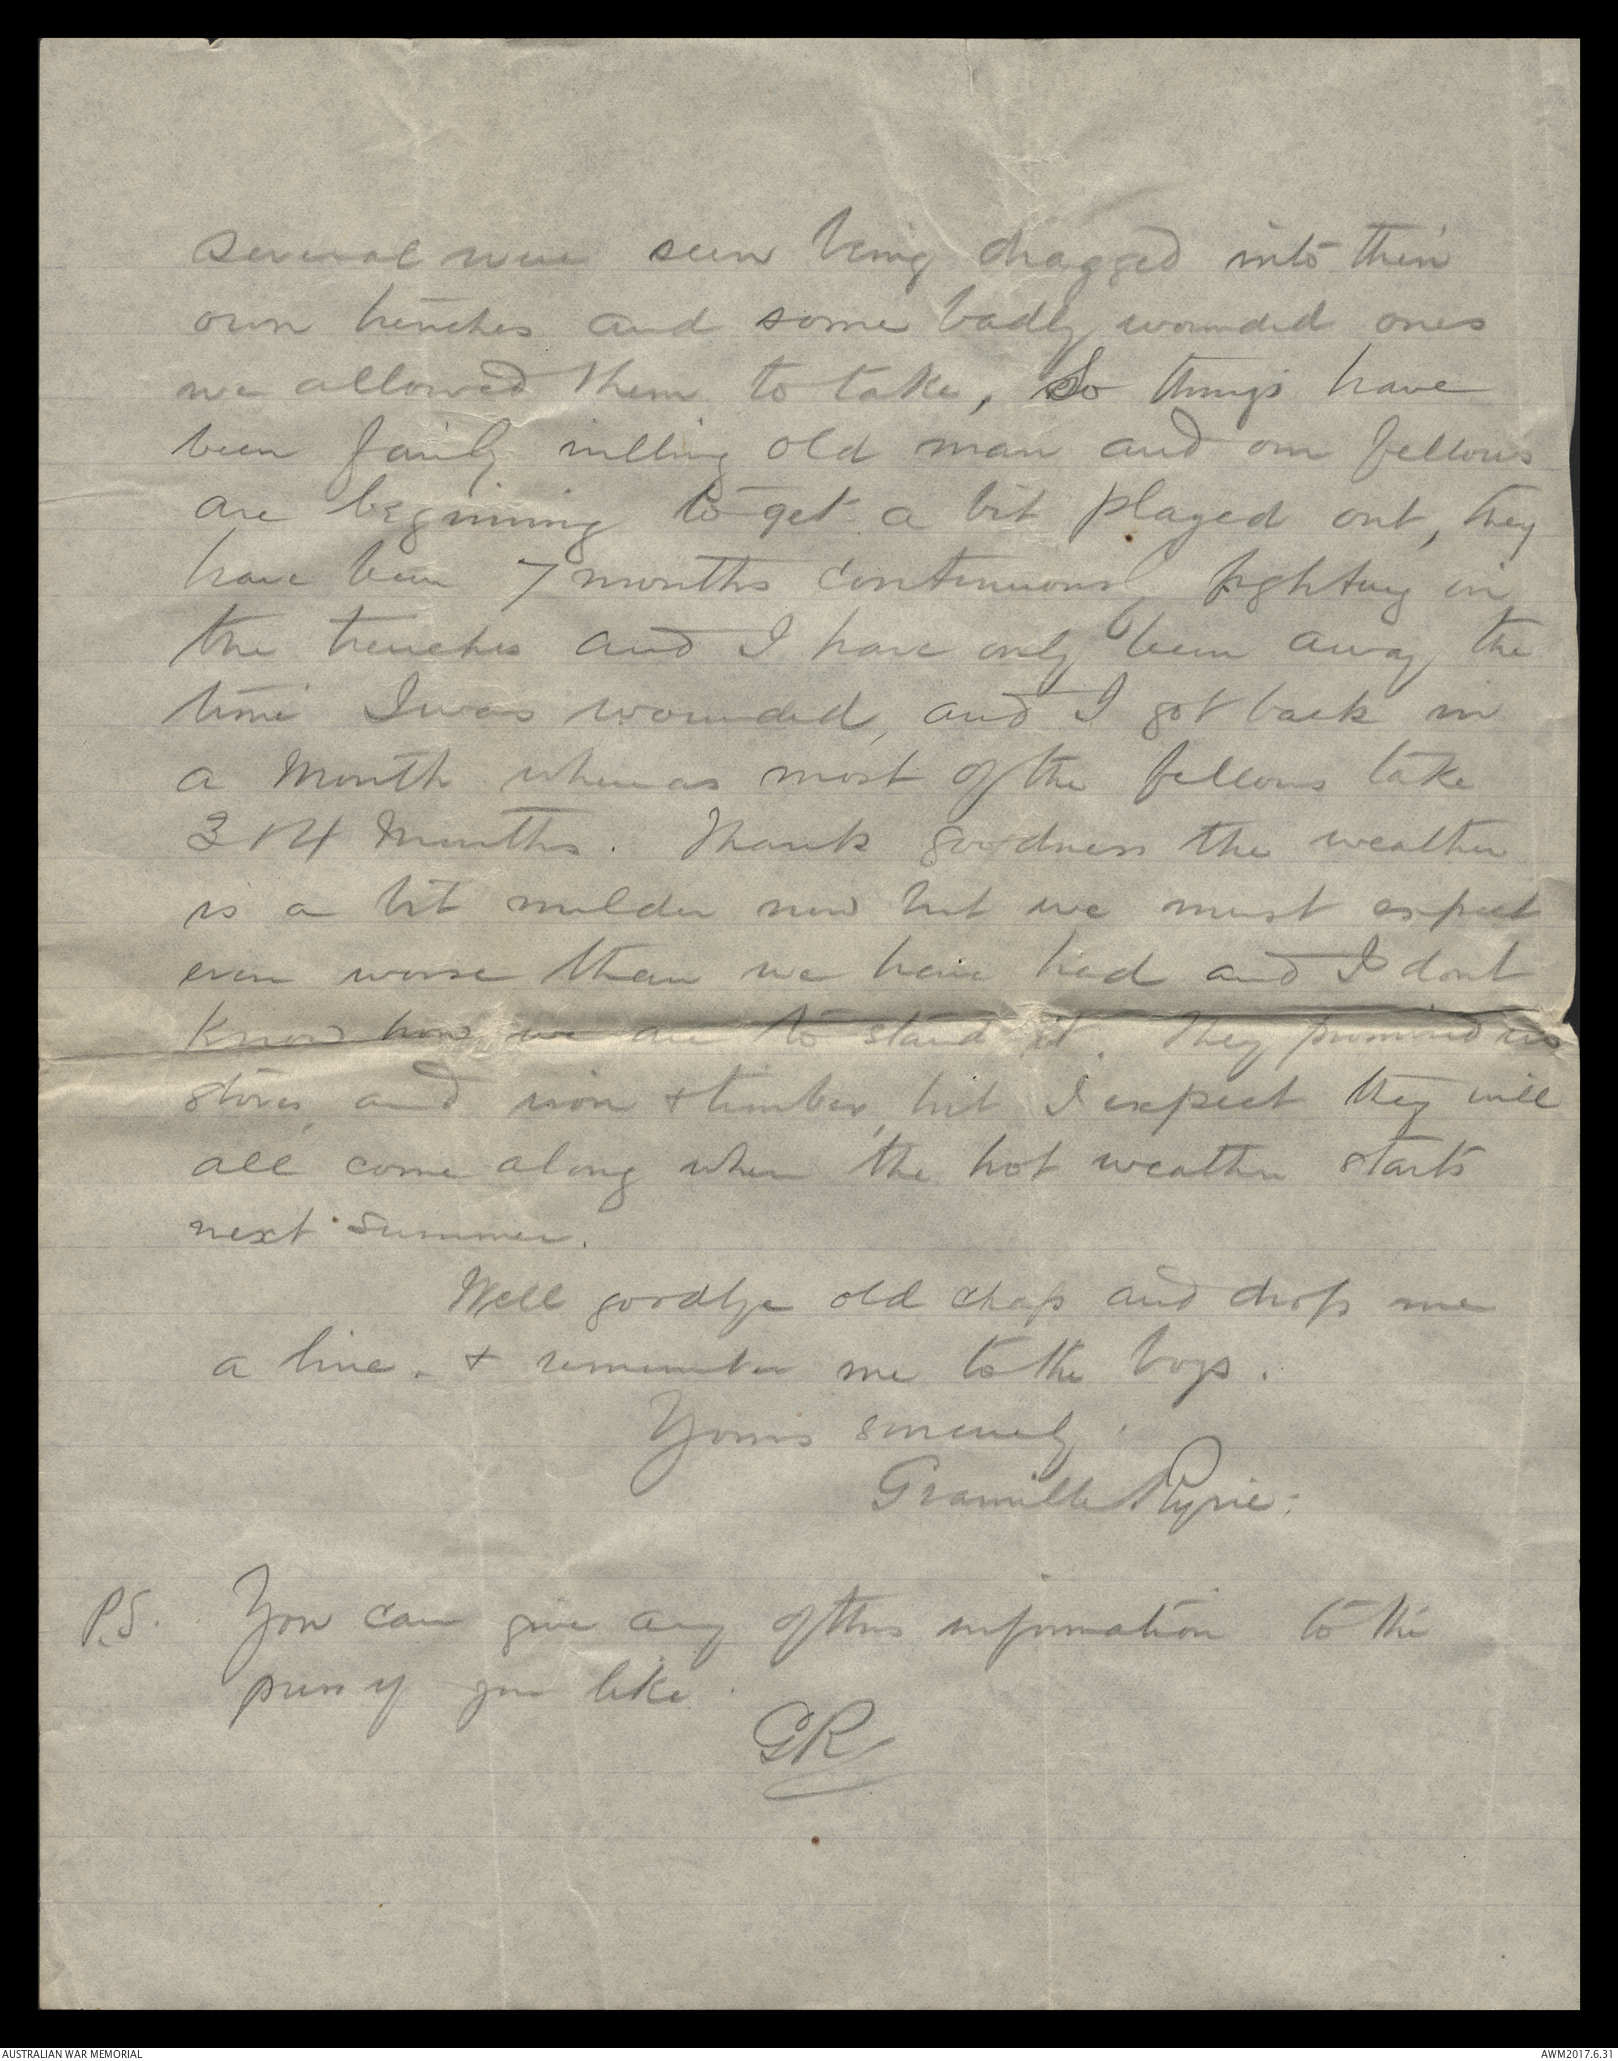 several were seen being dragged into their
own trenches and some badly wounded ones
we allowed them to take, So things have
been fairly willing old man and our fellows
are beginning to get a bit played out, they
have been 7 months continuous fighting in
the trenches and I have only been away the
time I was wounded, and I got back in
a Month whereas most of the fellows take
3 or 4 Months. Thank goodness the weather
is a bit milder now but we must expect
even worse than we have had and I dont
know how we are to stand it. They promised us
stoves, and iron & timber, but I expect they will
all come along when the hot weather starts
next summer.
Well goodbye old chap and drop me
a line. & remember me to the boys.
Yours sincerely.
Granville Ryrie.
P.S. You can give any of this information to the
press if you like.
GR
AUSTRALIAN WAR MEMORIAL
AWM2017.6.31